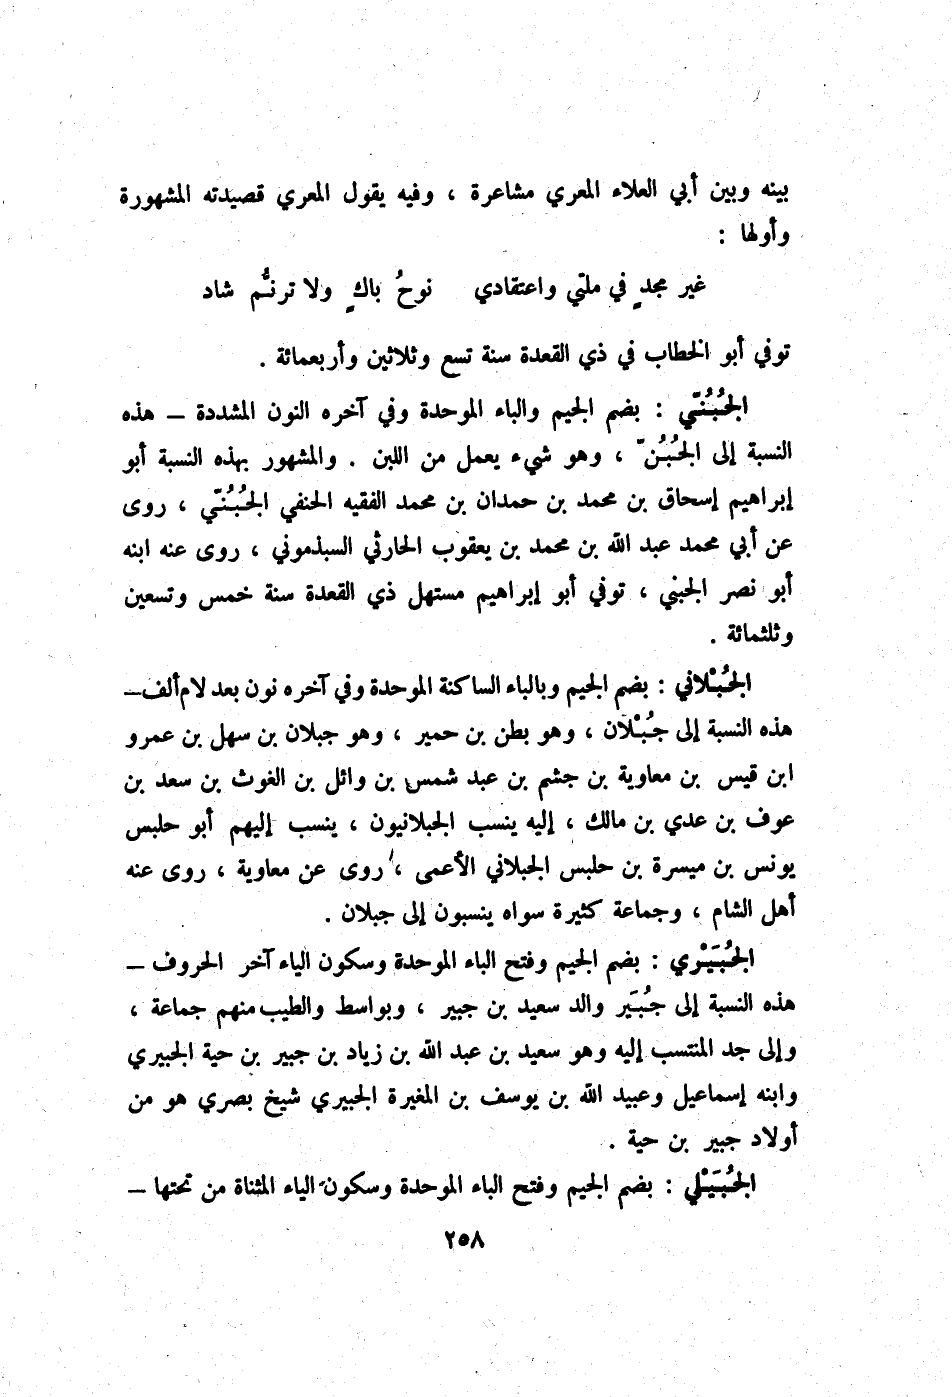 بينه وبين أبي العلاء المعري مشاعرة ، وفيه يقول المعري قصيدته المشهورة
وأولها :
غير مجدٍ في ملتي واعتقادي نوحُ باكٍ ولا ترنُّم شاد
توفي أبو الخطاب في ذي القعدة سنة تسع وثلاثين وأربعمائة .
الجُبُنّي : بضم الجيم والباء الموحدة وفي آخره النون المشددة ـ هذه
النسبة إلى الجُبُنّ ، وهو شيء يعمل من اللبن . والمشهور بهذه النسبة أبو
إبراهيم إسحاق بن محمد بن حمدان بن محمد الفقيه الحنفي الجُبُنّي ، روى
عن أبي محمد عبد الله بن محمد بن يعقوب الحارثي السبذموني ، روى عنه ابنه
أبو نصر الجبني ، توفي أبو إبراهيم مستهل ذي القعدة سنة خمس وتسعين
وثلثمائة .
الجُبْلاني : بضم الجيم وبالباء الساكنة الموحدة وفي آخره نون بعد لام ألف ـ
هذه النسبة إلى جُبْلان ، وهو بطن بن حمير ، وهو جبلان بن سهل بن عمرو
ابن قيس بن معاوية بن جشم بن عبد شمس بن وائل بن الغوث بن سعد بن
عوف بن عدي بن مالك ، إليه ينسب الجبلانيون ، ينسب إليهم أبو حلبس
يونس بن ميسرة بن حلبس الجبلاني الأعمى ، روى عن معاوية ، روى عنه
أهل الشام ، وجماعة كثيرة سواه ينسبون إلى جبلان .
الجُبَيْري : بضم الجيم وفتح الباء الموحدة وسكون الياء آخر الحروف ـ
هذه النسبة إلى جُبَير والد سعيد بن جبير ، وبواسط والطيب منهم جماعة ،
وإلى جد المنتسب إليه وهو سعيد بن عبد الله بن زياد بن جبير بن حية الجبيري
وابنه إسماعيل وعبيد الله بن يوسف بن المغيرة الجبيري شيخ بصري هو من
أولاد جبير بن حية .
الجُبَيْلي : بضم الجيم وفتح الباء الموحدة وسكون الياء المثناة من تحتها ـ
٢٥٨